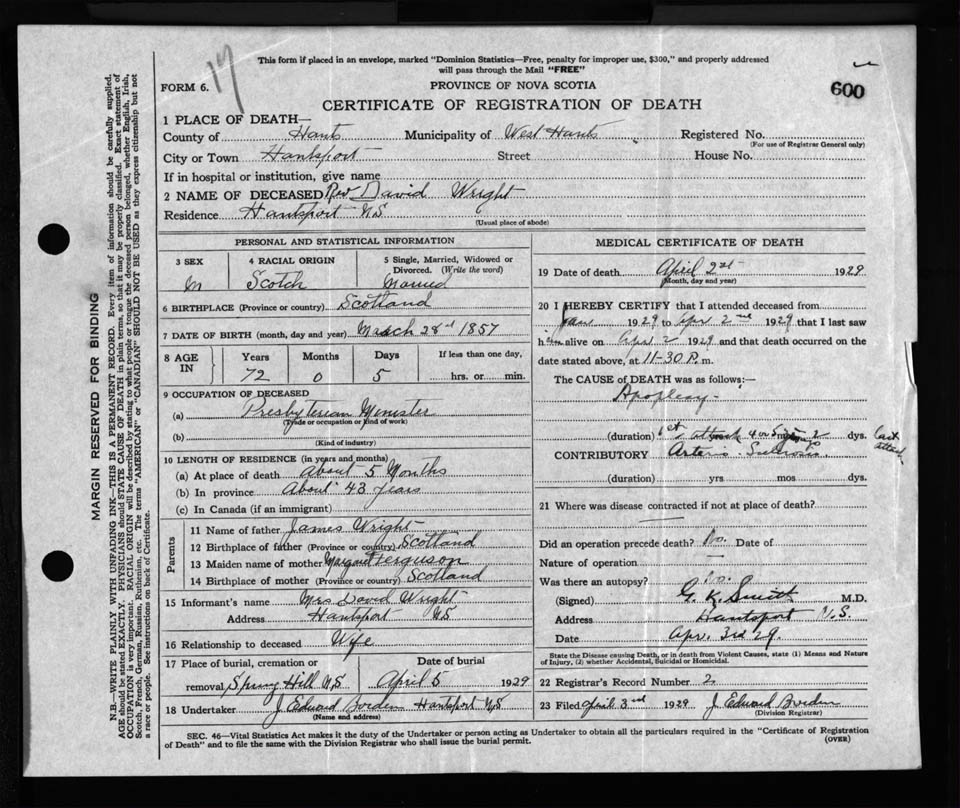 This form if placed in an envelope, marked "Dominion Statistics—Free, penalty for improper use, $300," and properly addressed
will pass through the Mail "FREE"
17
FORM 6.
PROVINCE OF NOVA SCOTIA
600
CERTIFICATE OF REGISTRATION OF DEATH
1 PLACE OF DEATH—
County of Hants Municipality of West Hants Registered No.
(For use of Registrar General only)
City or Town Hantsport Street House No.
If in hospital or institution, give name
2 NAME OF DECEASED Rev David Wright
Residence Hantsport NS
(Usual place of abode)
PERSONAL AND STATISTICAL INFORMATION
3 SEX 4 RACIAL ORIGIN 5 Single, Married, Widowed or
Divorced. (Write the word)
M Scotch Married
6 BIRTHPLACE (Province or country) Scotland
7 DATE OF BIRTH (month, day and year) March 28 1857
8 AGE IN Years Months Days If less than one day,
72 0 5 hrs. or min.
9 OCCUPATION OF DECEASED
(a) Presbyterian Minister
(Trade or occupation or kind of work)
(b)
(Kind of industry)
10 LENGTH OF RESIDENCE (in years and months)
(a) At place of death About 5 Months
(b) In province About 43 years
(c) In Canada (if an immigrant)
Parents
11 Name of father James Wright
12 Birthplace of father (Province or country) Scotland
13 Maiden name of mother Margaret Ferguson
14 Birthplace of mother (Province or country) Scotland
15 Informant's name Mrs David Wright
Address Hantsport NS
16 Relationship to deceased Wife
17 Place of burial, cremation or Date of burial
removal Spring Hill N,S April 5 1929
18 Undertaker J Edward Borden Hantsport NS
(Name and address)
MEDICAL CERTIFICATE OF DEATH
19 Date of death April 2 1929
(Month, day and year)
20 I HEREBY CERTIFY that I attended deceased from
Jan 1929 to Apr 2 1929 that I last saw
him alive on Apr 2 1929 and that death occurred on the
date stated above, at 11-30 P. m.
The CAUSE OF DEATH was as follows:—
Apoplexy-
(duration) 1st attack 2 dys. last attack
CONTRIBUTORY Arterio-Sclerosis
(duration) yrs mos dys.
21 Where was disease contracted if not at place of death?
Did an operation precede death? No. Date of
Nature of operation —
Was there an autopsy? No.
(Signed) G. K. Smith M.D.
Address Hantsport N.S.
Date Apr. 3rd 29.
State the Disease causing Death, or in death from Violent Causes, state (1) Means and Nature
of Injury, (2) whether Accidental, Suicidal or Homicidal.
22 Registrar's Record Number 2
23 Filed April 3rd 1929 J Edward Borden
(Division Registrar)
SEC. 46—Vital Statistics Act makes it the duty of the Undertaker or person acting as Undertaker to obtain all the particulars required in the "Certificate of Registration
of Death" and to file the same with the Division Registrar who shall issue the burial permit. (OVER)
MARGIN RESERVED FOR BINDING
N.B.—WRITE PLAINLY WITH UNFADING INK—THIS IS A PERMANENT RECORD. Every item of information should be carefully supplied.
AGE should be stated EXACTLY. PHYSICIANS should STATE CAUSE OF DEATH in plain terms, so that it may be properly classified. Exact statement of
OCCUPATION is very important. RACIAL ORIGIN will be described by stating to what people or tongue the deceased person belonged, whether English, Irish,
Scotch, French, German, Russian, Ruthenian, etc. The terms "AMERICAN" or "CANADIAN" SHOULD NOT BE USED as they express citizenship but not
a race or people. See instructions on back of Certificate.